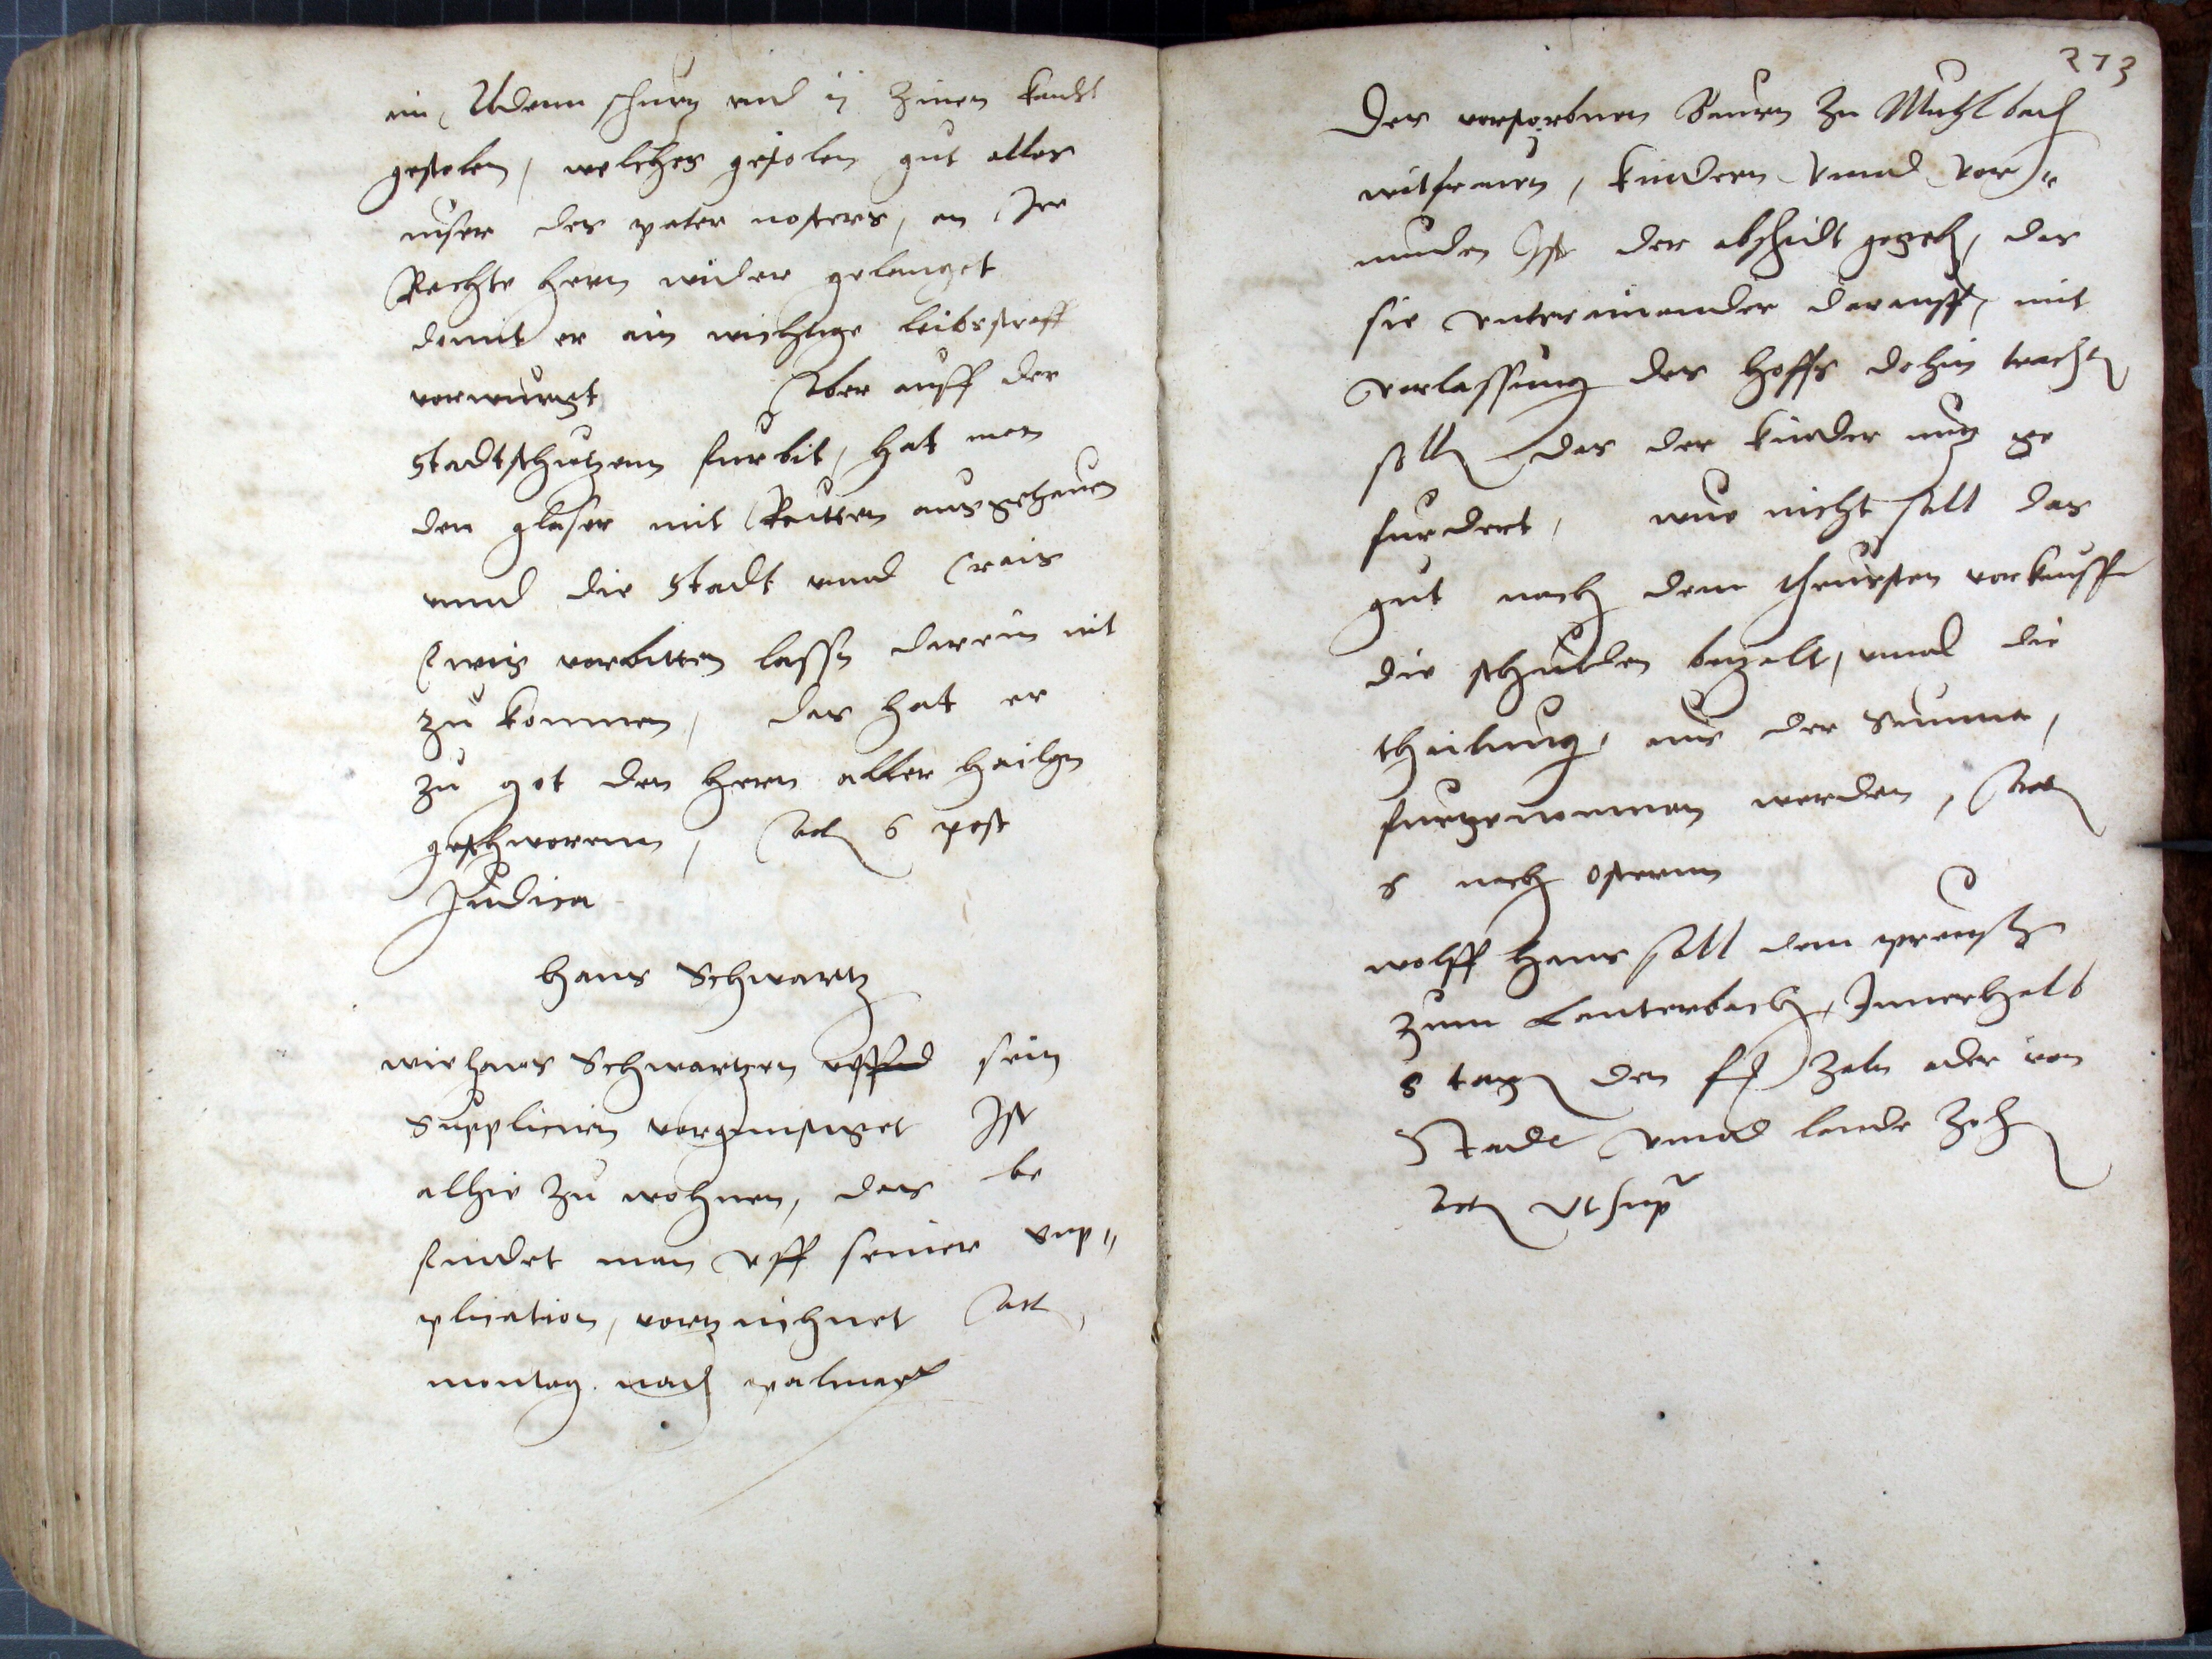 ein, Adenn schurz vnd ij Zinen kandt
gestolen, welches gestolen gut alles
ausser des pater nosters, an Ire
Rechte hern wider gelanget
domit er ein wichtige leibsstraff
vorwurgt Aber auff der
Stadtschutzenn furbit, hat man
den glaser mit Rutten ausgehauen
vnnd die Stadt vnnd Crais
Ewig vorbitten lassn darein nit
zu kommen, das hat er
zu got den hern aller hailgn
geschworenn, Act 6 post
Judica
hans Schwartz
wie hans Schwartzen sein
Supplicirn vorgunstiget Ist
alhie zu wohnen, das be
findet man vff seiner sup"
plication, vortzeichnet Act,
montag nach palmar
273
Des verstorbnen Bauren zu Muhlbach
witfrauen, kindern vnnd vor"
munden Ist der abschidt gegeb, das
sie vntereinander darauff, mit
vorlassung des hoffs dohin tracht
soll das der kinder nutz ge
furdert, wue nicht soll das
gut nach dem theursten vorkauff
die schulden bezalt, vnnd die
theilung, aus der Summa,
furgenommen werden, Act
6 nach Osternn
wolff hans soll dem
zum Lauterbach, Innerhalb
8 tagn den fl Zaln oder von
Stadt vnnd lande Zihn
Act vt sup